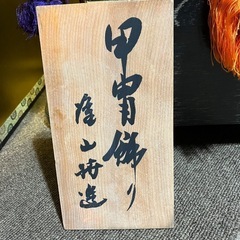 甲冑飾り
隆山特造